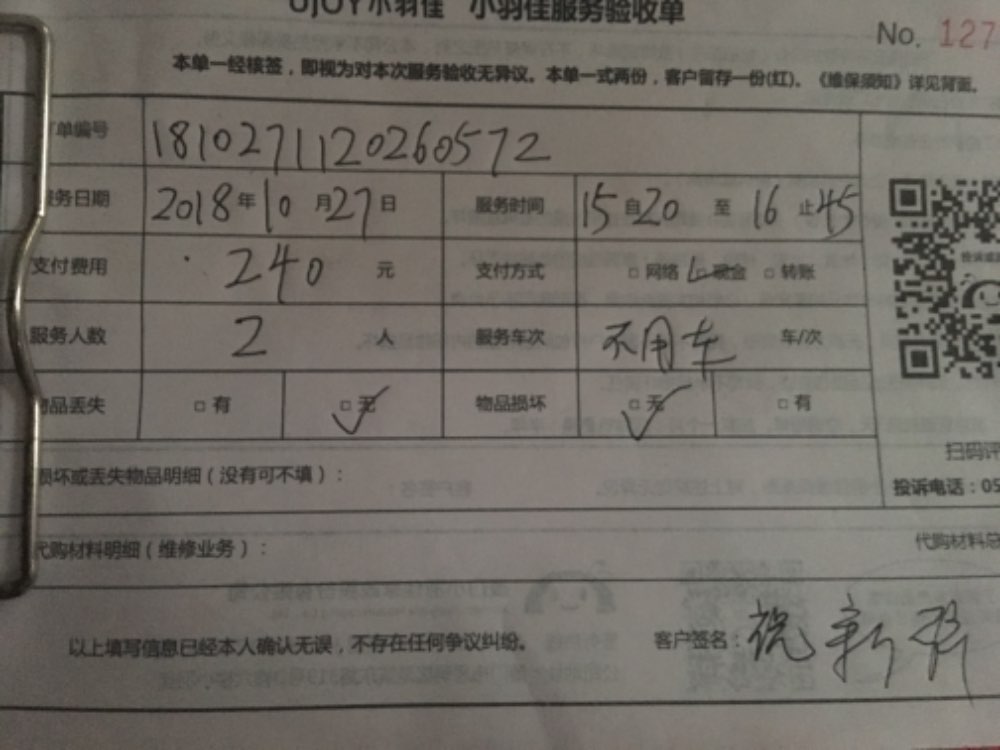 UJOY小羽佳 小羽佳服务验收单
No. 127
本单一经核签，即视为对本次服务验收无异议。本单一式两份，客户留存一份(红)。《维保须知》详见背面。
单编号 1810271120260572
服务日期 2018年10月27日 服务时间 15自20至16止45
支付费用 240 元 支付方式 □网络 □现金 □转账
服务人数 2 人 服务车次 不用车 车/次
物品丢失 □有 □无 物品损坏 □无 □有
损坏或丢失物品明细（没有可不填）：
扫码评
投诉电话：05
代购材料明细（维修业务）：
代购材料总
以上填写信息已经本人确认无误，不存在任何争议纠纷。 客户签名：祝新